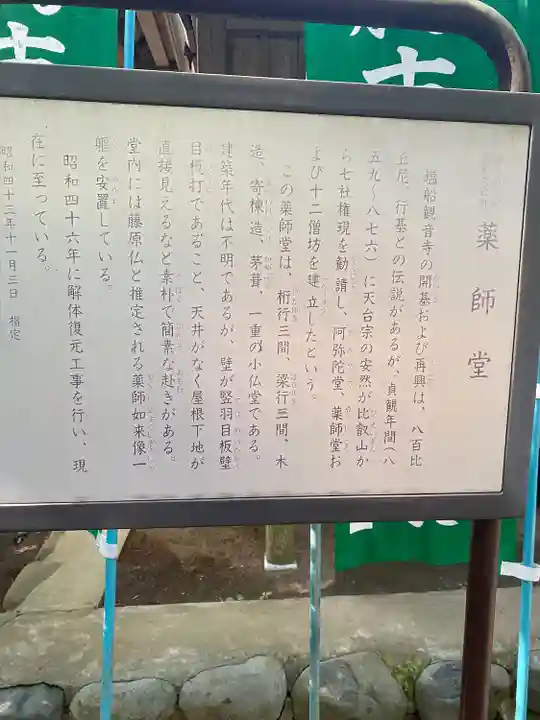 薬師堂
塩船観音寺の開基および再興は、八百比
丘尼、行基との伝説があるが、貞観年間(八
五九～八七六)に天台宗の安然が比叡山か
ら七社権現を勧請し、阿弥陀堂、薬師堂お
よび十二僧坊を建立したという。
この薬師堂は、桁行三間、梁行三間、木
造、寄棟造、茅葺、一重の小仏堂である。
建築年代は不明であるが、壁が竪羽目板壁
目板打であること、天井がなく屋根下地が
直接見えるなど素朴で簡素な趣きがある。
堂内には藤原仏と推定される薬師如来像一
軀を安置している。
昭和四十六年に解体復元工事を行い、現
在に至っている。
昭和四十三年十一月三日 指定